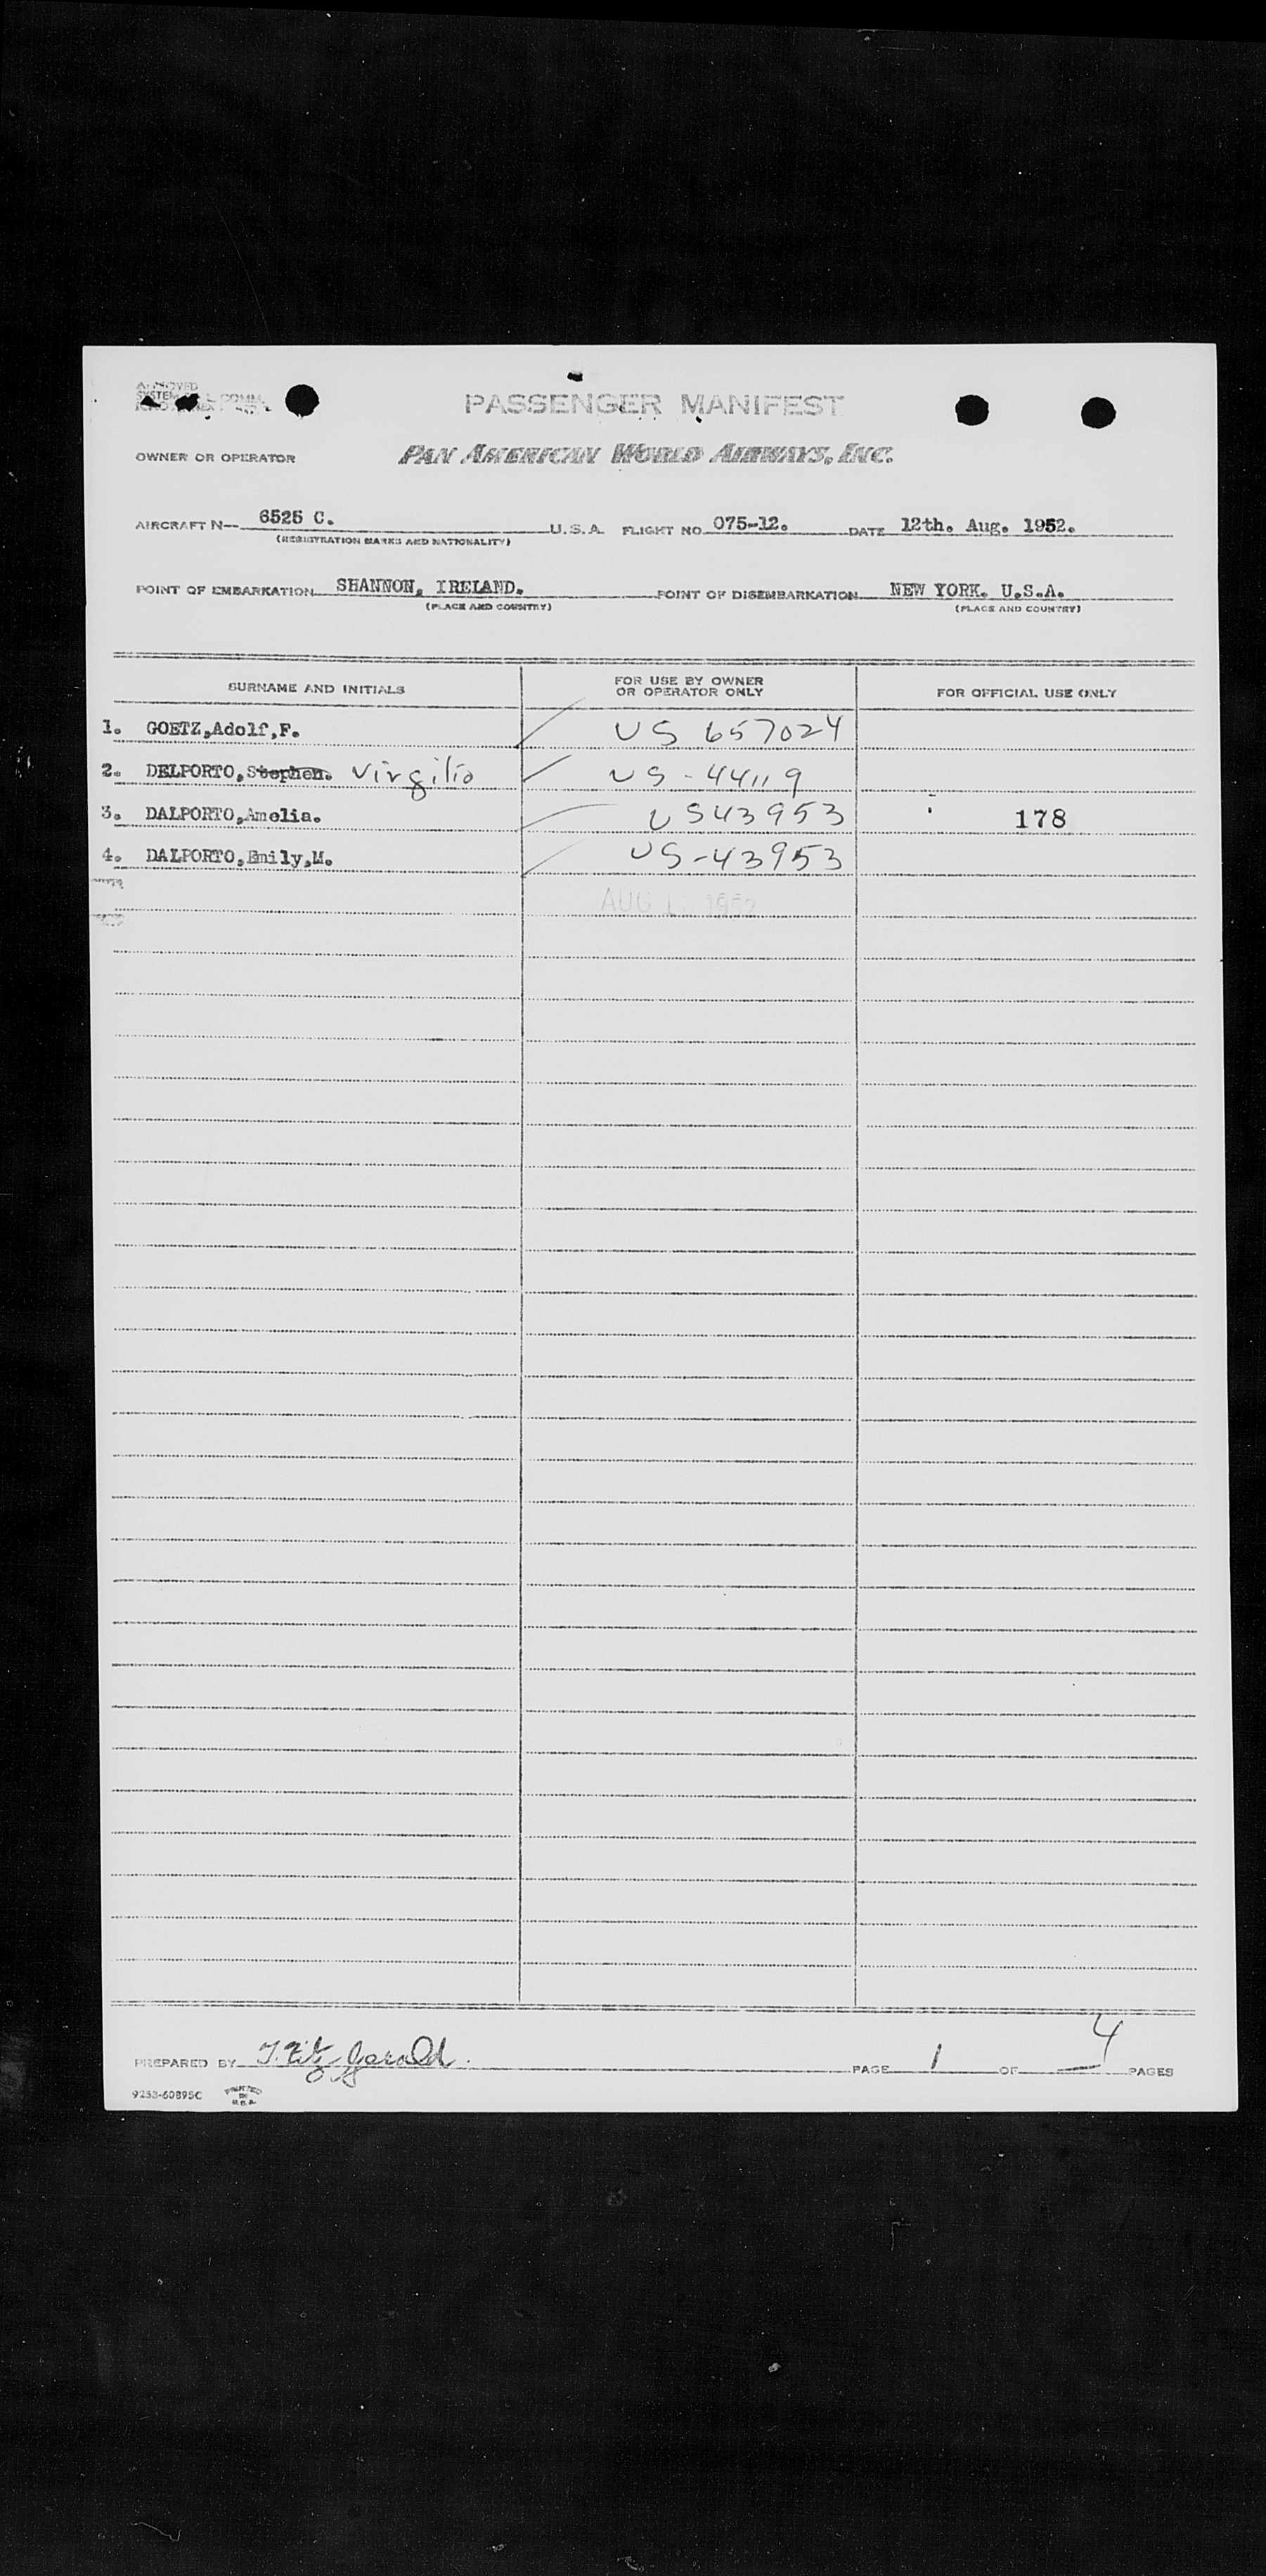 APPROVED
SYSTEM COMM.
PASSENGER MANIFEST
OWNER OR OPERATOR PAN AMERICAN WORLD AIRWAYS, INC.
AIRCRAFT N— 6525 C. U.S.A. FLIGHT NO. 075-12. DATE 12th. Aug. 1952.
(REGISTRATION MARKS AND NATIONALITY)
POINT OF EMBARKATION SHANNON, IRELAND. POINT OF DISEMBARKATION NEW YORK. U.S.A.
(PLACE AND COUNTRY) (PLACE AND COUNTRY)
SURNAME AND INITIALS FOR USE BY OWNER OR OPERATOR ONLY FOR OFFICIAL USE ONLY
1. GOETZ,Adolf,F. US 657024
2. DELPORTO,Stephen. Virgilio US-44119
3. DALPORTO,Amelia. US43953 178
4. DALPORTO,Emily,M. US-43953
AUG 1 1952
PREPARED BY T. Fitzgerald. PAGE 1 OF 4 PAGES
9253-60895C PRINTED IN U.S.A.